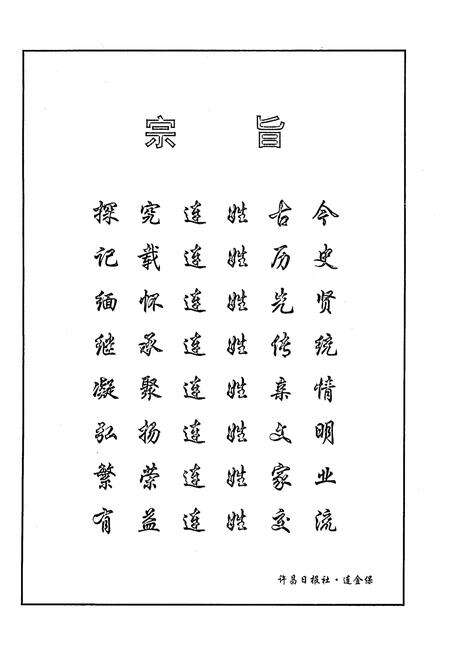 宗旨
探究连姓古今
记载连姓历史
缅怀连姓先贤
继承连姓传统
凝聚连姓亲情
弘扬连姓文明
繁荣连姓家业
有益连姓交流
许昌日报社·连金保